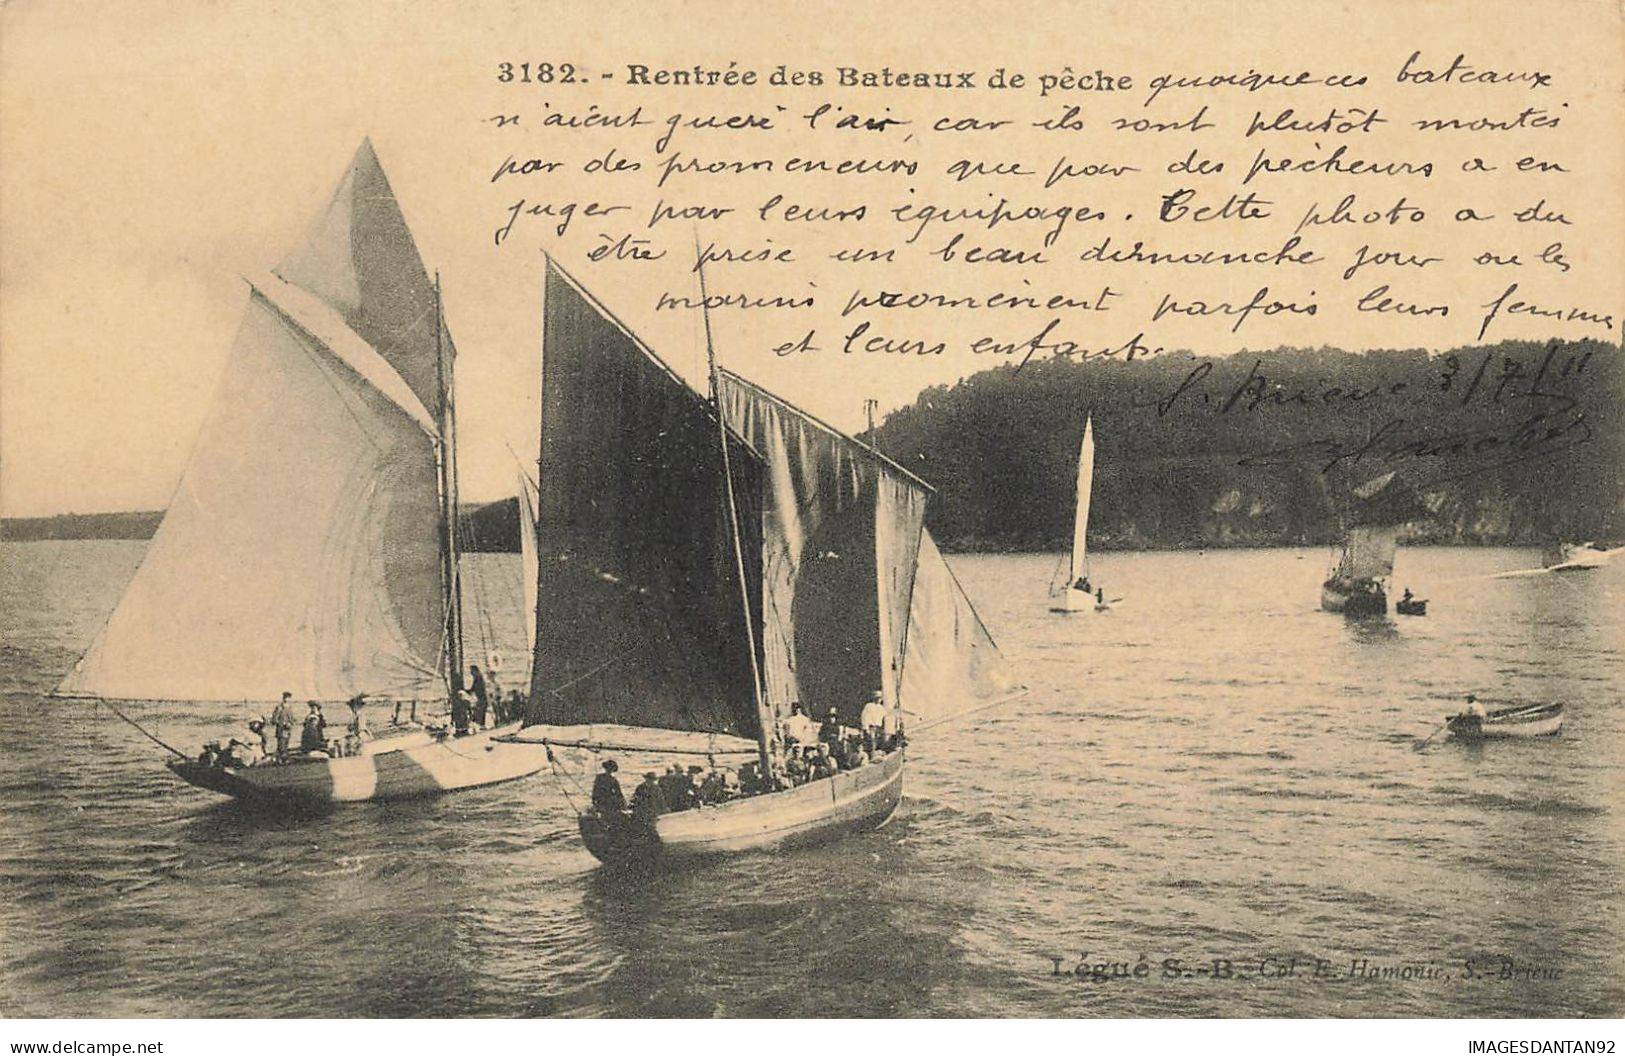 3182. - Rentrée des Bateaux de pêche quoique ces bateaux
n'aient gueré l'air, car ils sont plutôt montés
par des promeneurs que par des pêcheurs a en
juger par leurs équipages. Cette photo a du
être prise un beau dimanche jour ou les
marins promènent parfois leurs femmes
et leurs enfants.
S. Brieuc 3/7/11
Légué S.-B. Col. E. Hamonic, S.-Brieuc
delcampe.net
IMAGESDANTAN92